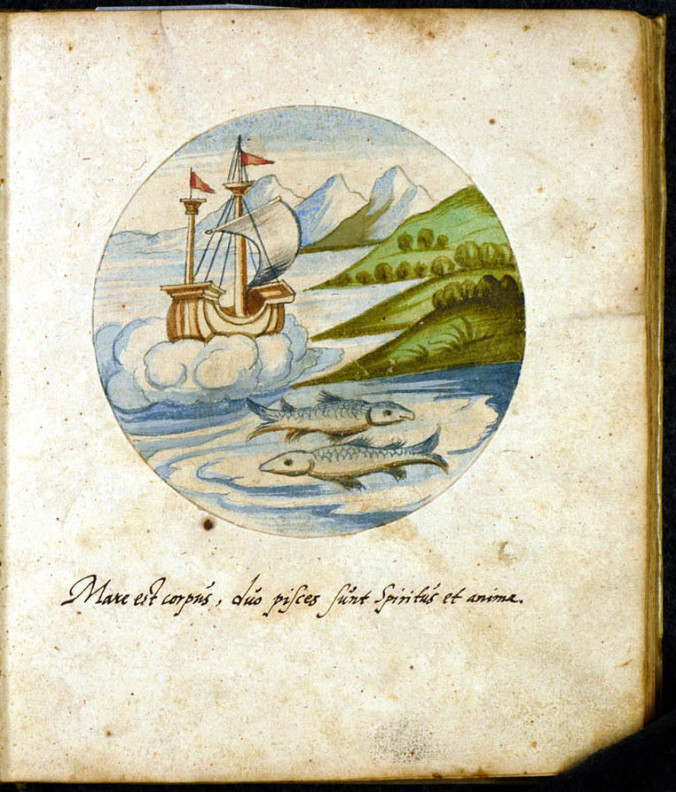 Mare est corpus, duo pisces sunt Spiritus et anima.